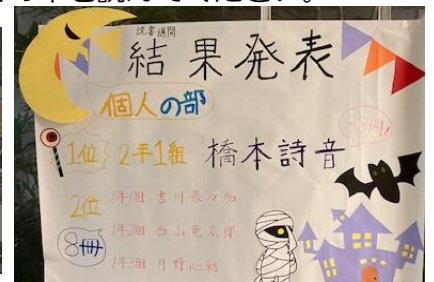 読書週間
結果発表
個人の部
1位 2年1組 橋本詩音
2位 1年1組 吉川奈々加
8冊 1年2組 西山竜太郎
1年3組 月野心結